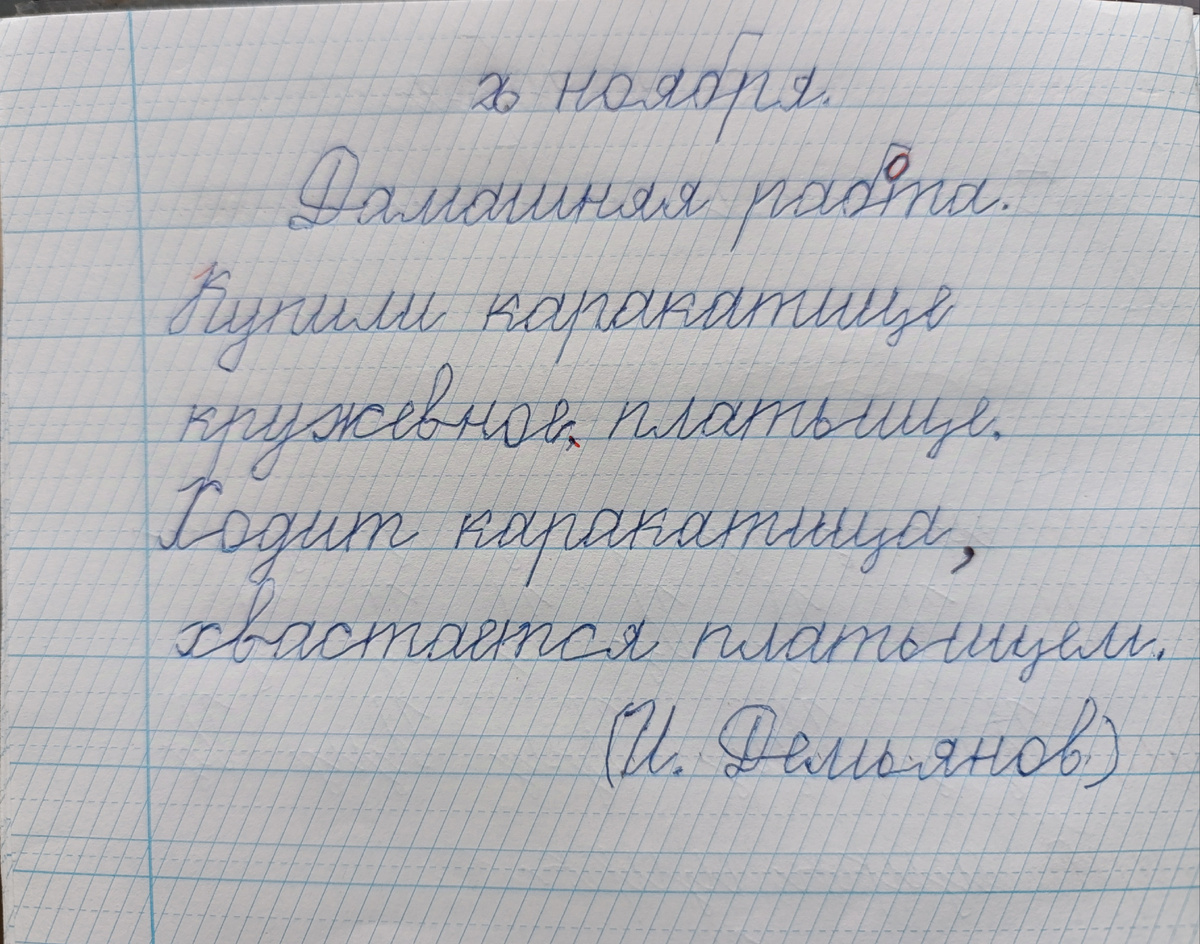 х ноября.
Дамашняя работа.
Купили каракатице
кружевное платьице.
Ходит каракатица,
хвастается платьицем.
(И. Демьянов)